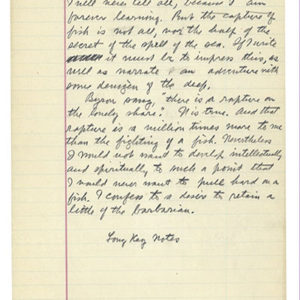 I will never tell all, because I am
forever learning. But the capture of
fish is not all, nor the half of the
secret of the spell of the sea. If I write
it must be to impress this, as
well as narrate an adventure with
some denizen of the deep.
Byron sang, there is a rapture on
the lonely shore! It is true. And that
rapture is a million times more to me
than the fighting of a fish. Nevertheless
I would not want to develop intellectually
and spiritually to such a point that
I would never want to pull hard on a
fish. I confess to a desire to retain a
little of the barbarian.
Long Key Notes